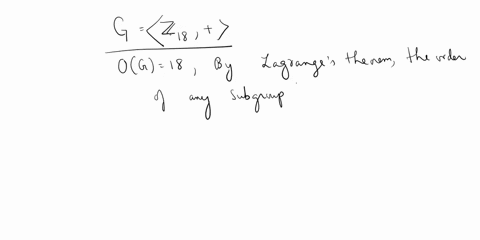 G = <ℤ₁₈, +>
O(G) = 18, By Lagrange's theorem, the order
of any subgroup